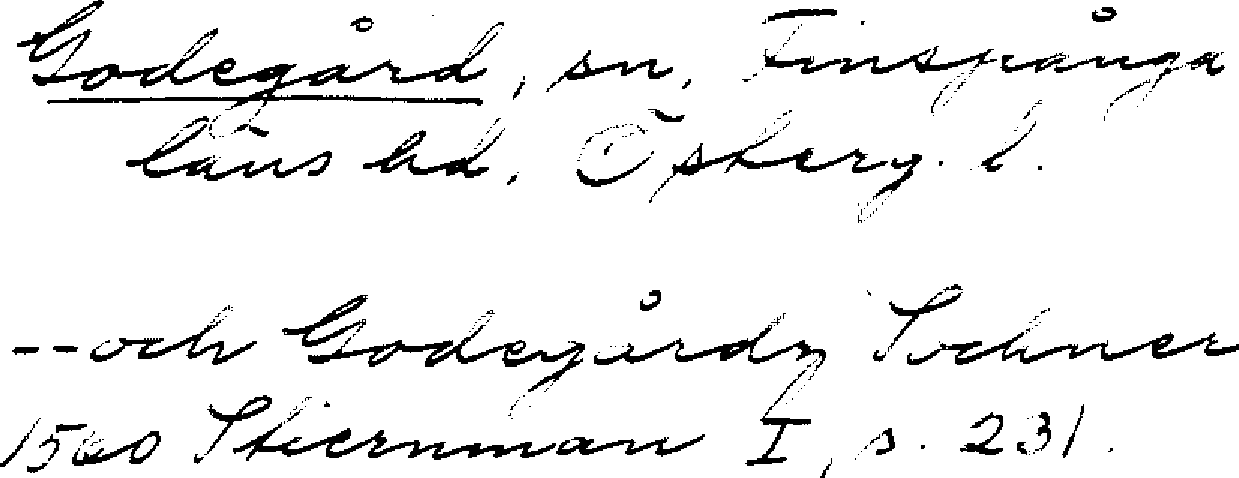 Godegård, sn, Finspånga
läns hd, Österg. l.
--och Godegårdz Sochner
1560 Stiernman I, s. 231.